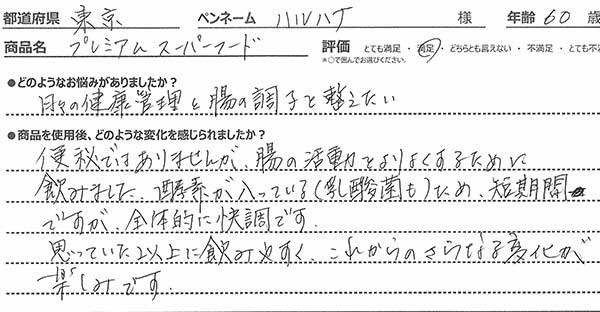 都道府県 東京 ペンネーム ハルハナ 様 年齢 60 歳
商品名 プレミアムスーパーフード 評価 とても満足・満足・どちらとも言えない・不満足・とても不
※○で囲んでお選びください。
●どのようなお悩みがありましたか?
日々の健康管理と腸の調子を整えたい
●商品を使用後、どのような変化を感じられましたか?
便秘ではありませんが、腸の活動をよりよくするために
飲みました。酵素が入っている(乳酸菌も)ため、短期間
ですが、全体的に快調です。
思っていた以上に飲みやすく、これからのさらなる変化が
楽しみです。